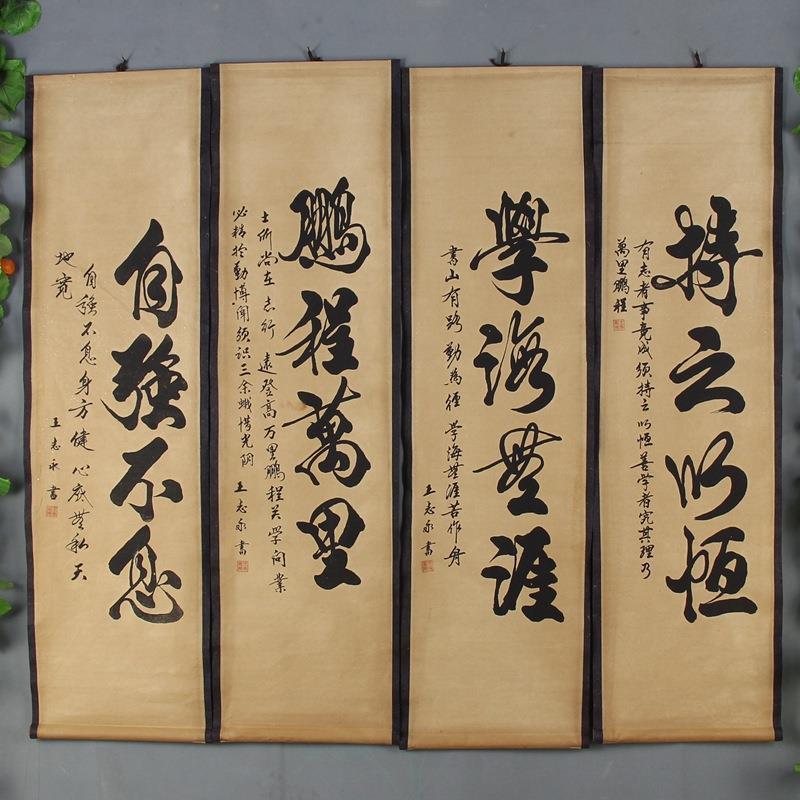 持之以恒
有志者事竟成须持之以恒善学者究其理乃
萬里鹏程
學海無涯
書山有路勤為徑学海無涯苦作舟
王志永書
鵬程萬里
士所尚在志行遠登高万里鵬程关学问業
必精於勤博闻须识三余 惜光阴
王志永書
自強不息
自強不息身方健心底無私天
地宽
王志永書